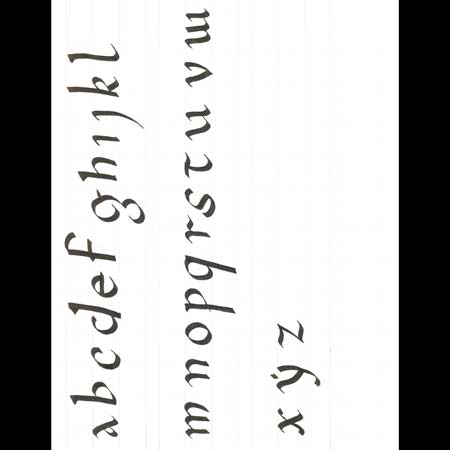 a b c d e f g h i j k l
m n o p q r s t u v w
x ẏ z